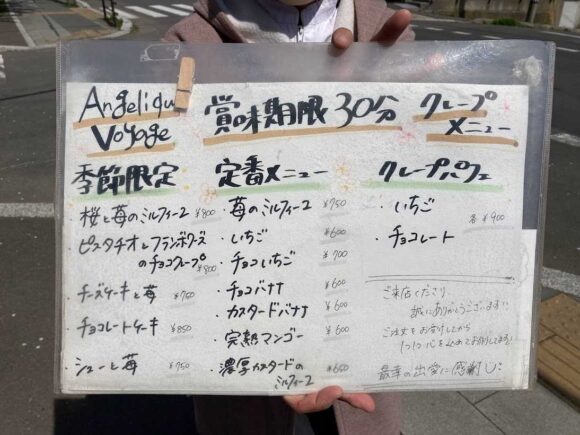 Angelique
Voyage
賞味期限30分
クレープ
メニュー
季節限定
・桜と苺のミルフィーユ ¥800
ピスタチオとフランボワーズ
のチョコクレープ ¥800
・チーズケーキと苺 ¥750
・チョコレートケーキ ¥850
・シューと苺 ¥750
定番メニュー
・苺のミルフィーユ ¥750
・いちご ¥600
・チョコいちご ¥700
・チョコバナナ ¥600
・カスタードバナナ ¥600
・完熟マンゴー ¥600
・濃厚カスタードの
ミルフィーユ ¥650
クレープパフェ
・いちご
各 ¥900
・チョコレート
ご来店くださり
誠にありがとうございます
ご注文をお受けしてから
1つ1つ心を込めてお作りしてます
最幸の出会に感謝